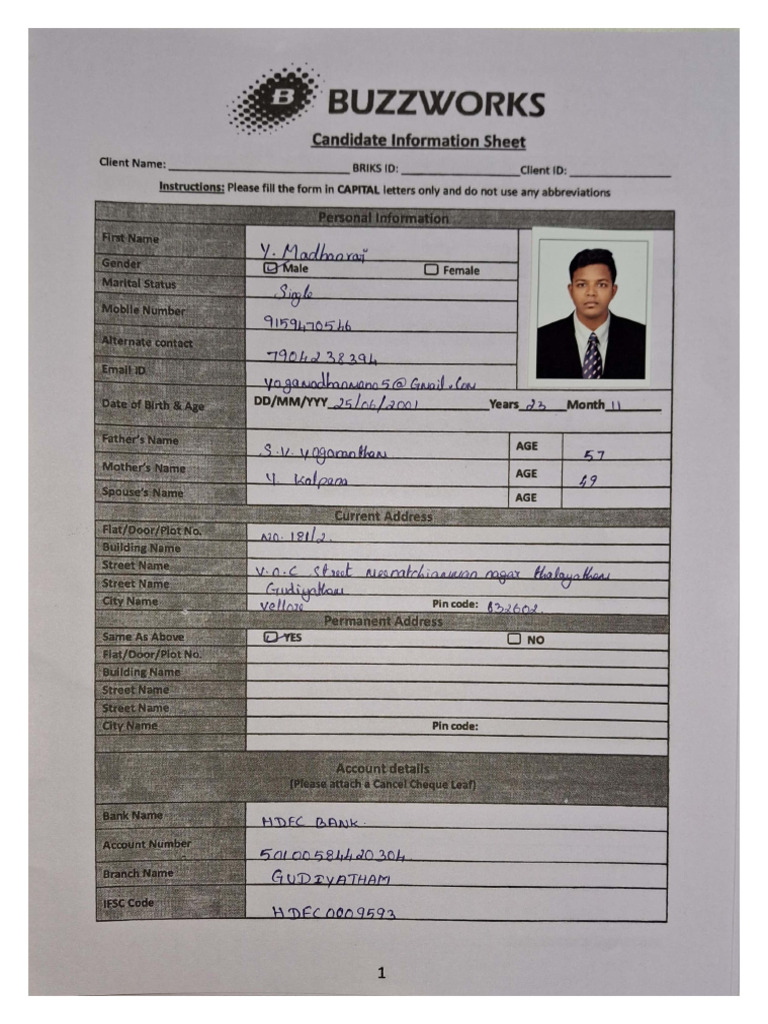 B BUZZWORKS
Candidate Information Sheet
Client Name: BRIKS ID: Client ID:
Instructions: Please fill the form in CAPITAL letters only and do not use any abbreviations
Personal Information
First Name Y. Madhanraj
Gender Male Female
Marital Status Single
Mobile Number 9159470546
Alternate contact 7904238394
Email ID
Date of Birth & Age DD/MM/YYY 25/06/2001 Years 23 Month 11
Father's Name S.V. AGE 57
Mother's Name Y Kalpana AGE 49
Spouse's Name AGE
Current Address
Flat/Door/Plot No. NO. 181/2
Building Name
Street Name V.O.C Street nagar
Street Name Gudiyatham
City Name Vellore Pin code: 632602
Permanent Address
Same As Above YES NO
Flat/Door/Plot No.
Building Name
Street Name
Street Name
City Name Pin code:
Account details
(Please attach a Cancel Cheque Leaf)
Bank Name HDFC BANK.
Account Number 50100584420304
Branch Name GUDIYATHAM
IFSC Code HDFC0009593
1